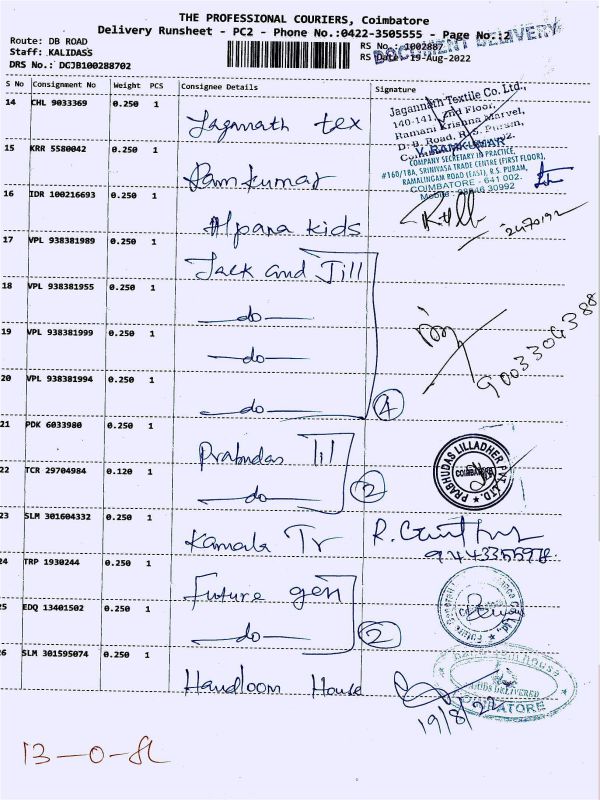 THE PROFESSIONAL COURIERS, Coimbatore
Delivery Runsheet - PC2 - Phone No.:0422-3505555 - Page No.:2
Route: DB ROAD
Staff: KALIDASS
DRS No.: DGJB100288702
RS No.: 1002887
RS Date: 19-Aug-2022
DOCUMENT DELIVERY
S No Consignment No Weight PCS Consignee Details Signature
14 CHL 9033369 0.250 1 Jagannath tex
Jagannath Textile Co. Ltd.,
140-141, 2nd Floor,
Ramani Krishna Marvel,
D. B. Road, R.S. Puram,
15 KRR 5580042 0.250 1 Ramkumar
V. RAMKUMAR
COMPANY SECRETARY IN PRACTICE,
#160/18A, SRINIVASA TRADE CENTRE (FIRST FLOOR),
RAMALINGAM ROAD (EAST), R.S. PURAM,
COIMBATORE - 641 002.
16 IDR 100216693 0.250 1 Alpana kids
17 VPL 938381989 0.250 1 Jack and Jill
18 VPL 938381955 0.250 1 — do —
19 VPL 938381999 0.250 1 — do —
20 VPL 938381994 0.250 1 — do — 4
9003304388
21 PDK 6033980 0.250 1 Prabudas lil
22 TCR 29704984 0.120 1 — do — 2
PRABHUDAS LILLADHER PVT. LTD.
COIMBATORE
23 SLM 301604332 0.250 1 Kamala Tr
24 TRP 1930244 0.250 1 Future gen
25 EDQ 13401502 0.250 1 — do — 2
26 SLM 301595074 0.250 1 Handloom House
19/8/22
13-0-SL